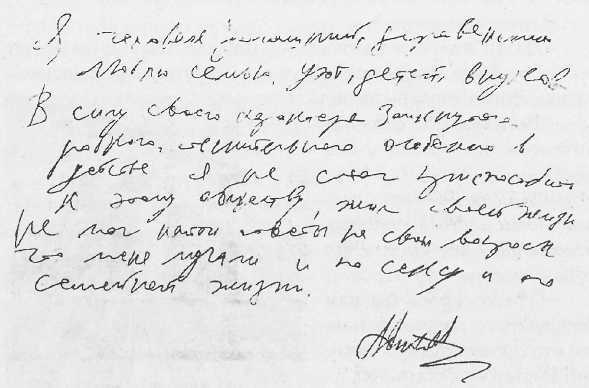 Я человек домашний, деревенский
Люблю семью, уют, детей, внуков
В силу своего характера замкнутого
робкого, стеснительного особенно в
детстве я не смог приспособиться
к этому обществу, жил своей жизнью
Не мог найти ответы на свои вопросы
что меня мучали и по сексу и по
семейной жизни.